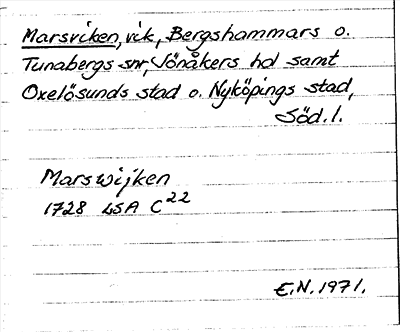 Marsviken, vik, Bergshammars o.
Tunabergs snr, Jönåkers hd samt
Oxelösunds stad o. Nyköpings stad,
Söd. l.
Marswijken
1728 LSA C22
E.N. 1971.